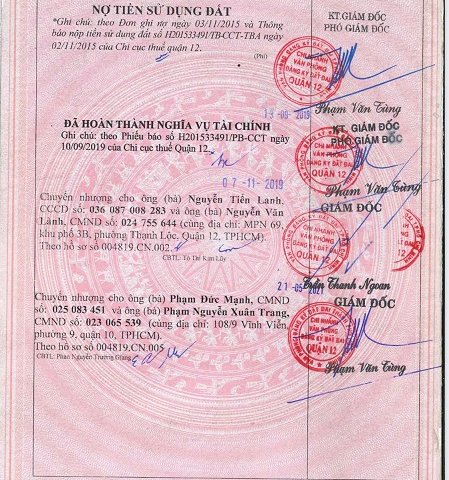 NỢ TIỀN SỬ DỤNG ĐẤT
*Ghi chú: theo Đơn ghi nợ ngày 03/11/2015 và Thông
báo nộp tiền sử dụng đất số H201533491/TB-CCT-TBA ngày
02/11/2015 của Chi cục thuế quận 12.
(Phi)
KT.GIÁM ĐỐC
PHÓ GIÁM ĐỐC
CHI NHÁNH
VĂN PHÒNG
ĐĂNG KÝ ĐẤT ĐAI
QUẬN 12
Phạm Văn Tùng
ĐÃ HOÀN THÀNH NGHĨA VỤ TÀI CHÍNH
Ghi chú: theo Phiếu báo số H201533491/PB-CCT ngày
10/09/2019 của Chi cục thuế Quận 12.
KT. GIÁM ĐỐC
PHÓ GIÁM ĐỐC
CHI NHÁNH
VĂN PHÒNG
ĐĂNG KÝ ĐẤT ĐAI
QUẬN 12
Phạm Văn Tùng
07-11-2019
Chuyển nhượng cho ông (bà) Nguyễn Tiến Lanh,
CCCD số: 036 087 008 283 và ông (bà) Nguyễn Văn
Lành, CMND số: 024 755 644 (cùng địa chỉ: MPN 69,
khu phố 3B, phường Thạnh Lộc, Quận 12, TPHCM).
Theo hồ sơ số 004819.CN.002
CBTL: Tô Thị Kim Lũy
GIÁM ĐỐC
CHI NHÁNH
VĂN PHÒNG
ĐĂNG KÝ ĐẤT ĐAI
QUẬN 12
Trần Thanh Ngoan
21-05-2021
Chuyển nhượng cho ông (bà) Phạm Đức Mạnh, CMND
số: 025 083 451 và ông (bà) Phạm Nguyễn Xuân Trang,
CMND số: 023 065 539 (cùng địa chỉ: 108/9 Vĩnh Viễn
phường 9, quận 10, TPHCM).
Theo hồ sơ số 004819.CN.005
CBTL: Phan Nguyễn Trường Giang
GIÁM ĐỐC
CHI NHÁNH
VĂN PHÒNG
ĐĂNG KÝ ĐẤT ĐAI
QUẬN 12
Phạm Văn Tùng